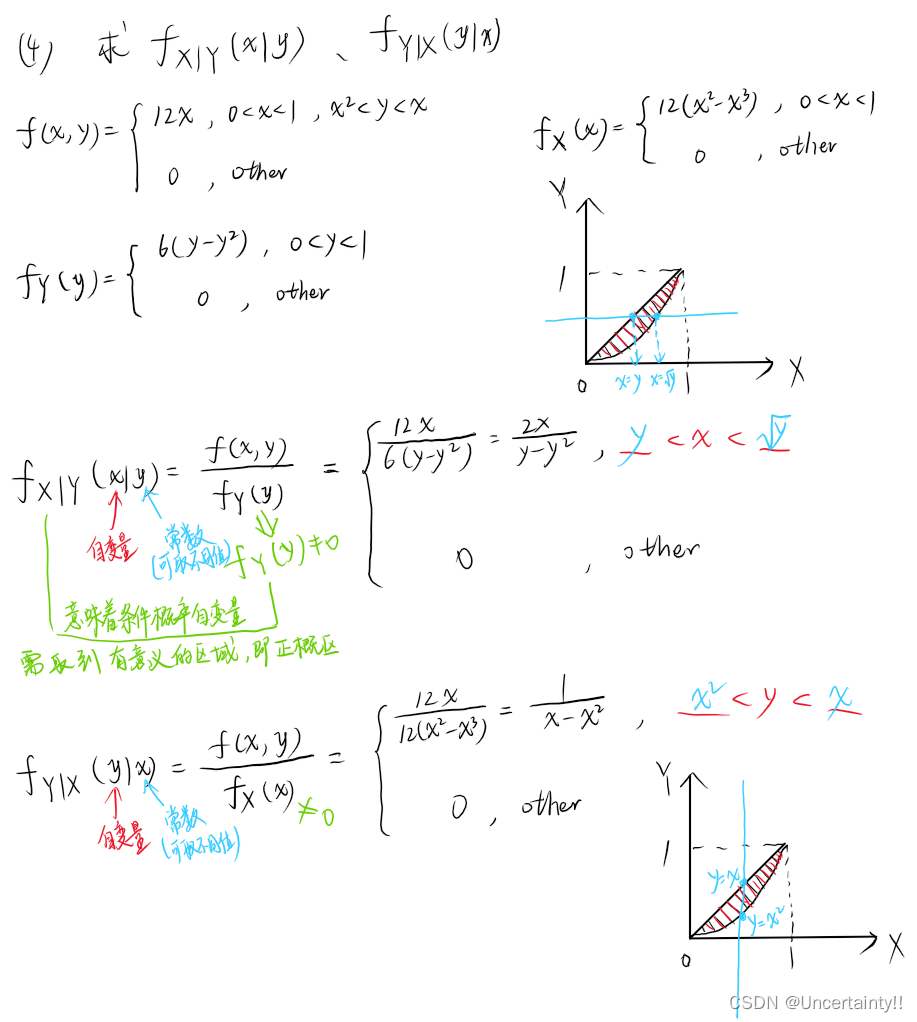 (4) 求 f_{X|Y}(x|y)、f_{Y|X}(y|x)
f(x,y)= { 12x , 0<x<1 , x²<y<x
0 , other
f_X(x)= { 12(x²-x³) , 0<x<1
0 , other
f_Y(y)= { 6(y-y²) , 0<y<1
0 , other
Y
1
0
x=y x=√y
X
f_{X|Y}(x|y)= f(x,y)/f_Y(y) = { 12x/6(y-y²) = 2x/y-y² , y<x<√y
0 , other
自变量
常数
(可取不同值)
f_Y(y)≠0
意味着条件概率自变量
需取到有意义的区域,即正概区
f_{Y|X}(y|x) = f(x,y)/f_X(x) = { 12x/12(x²-x³) = 1/x-x² , x²<y<x
0 , other
≠0
自变量
常数
(可取不同值)
Y
1
y=x
y=x²
0
X
CSDN @Uncertainty!!